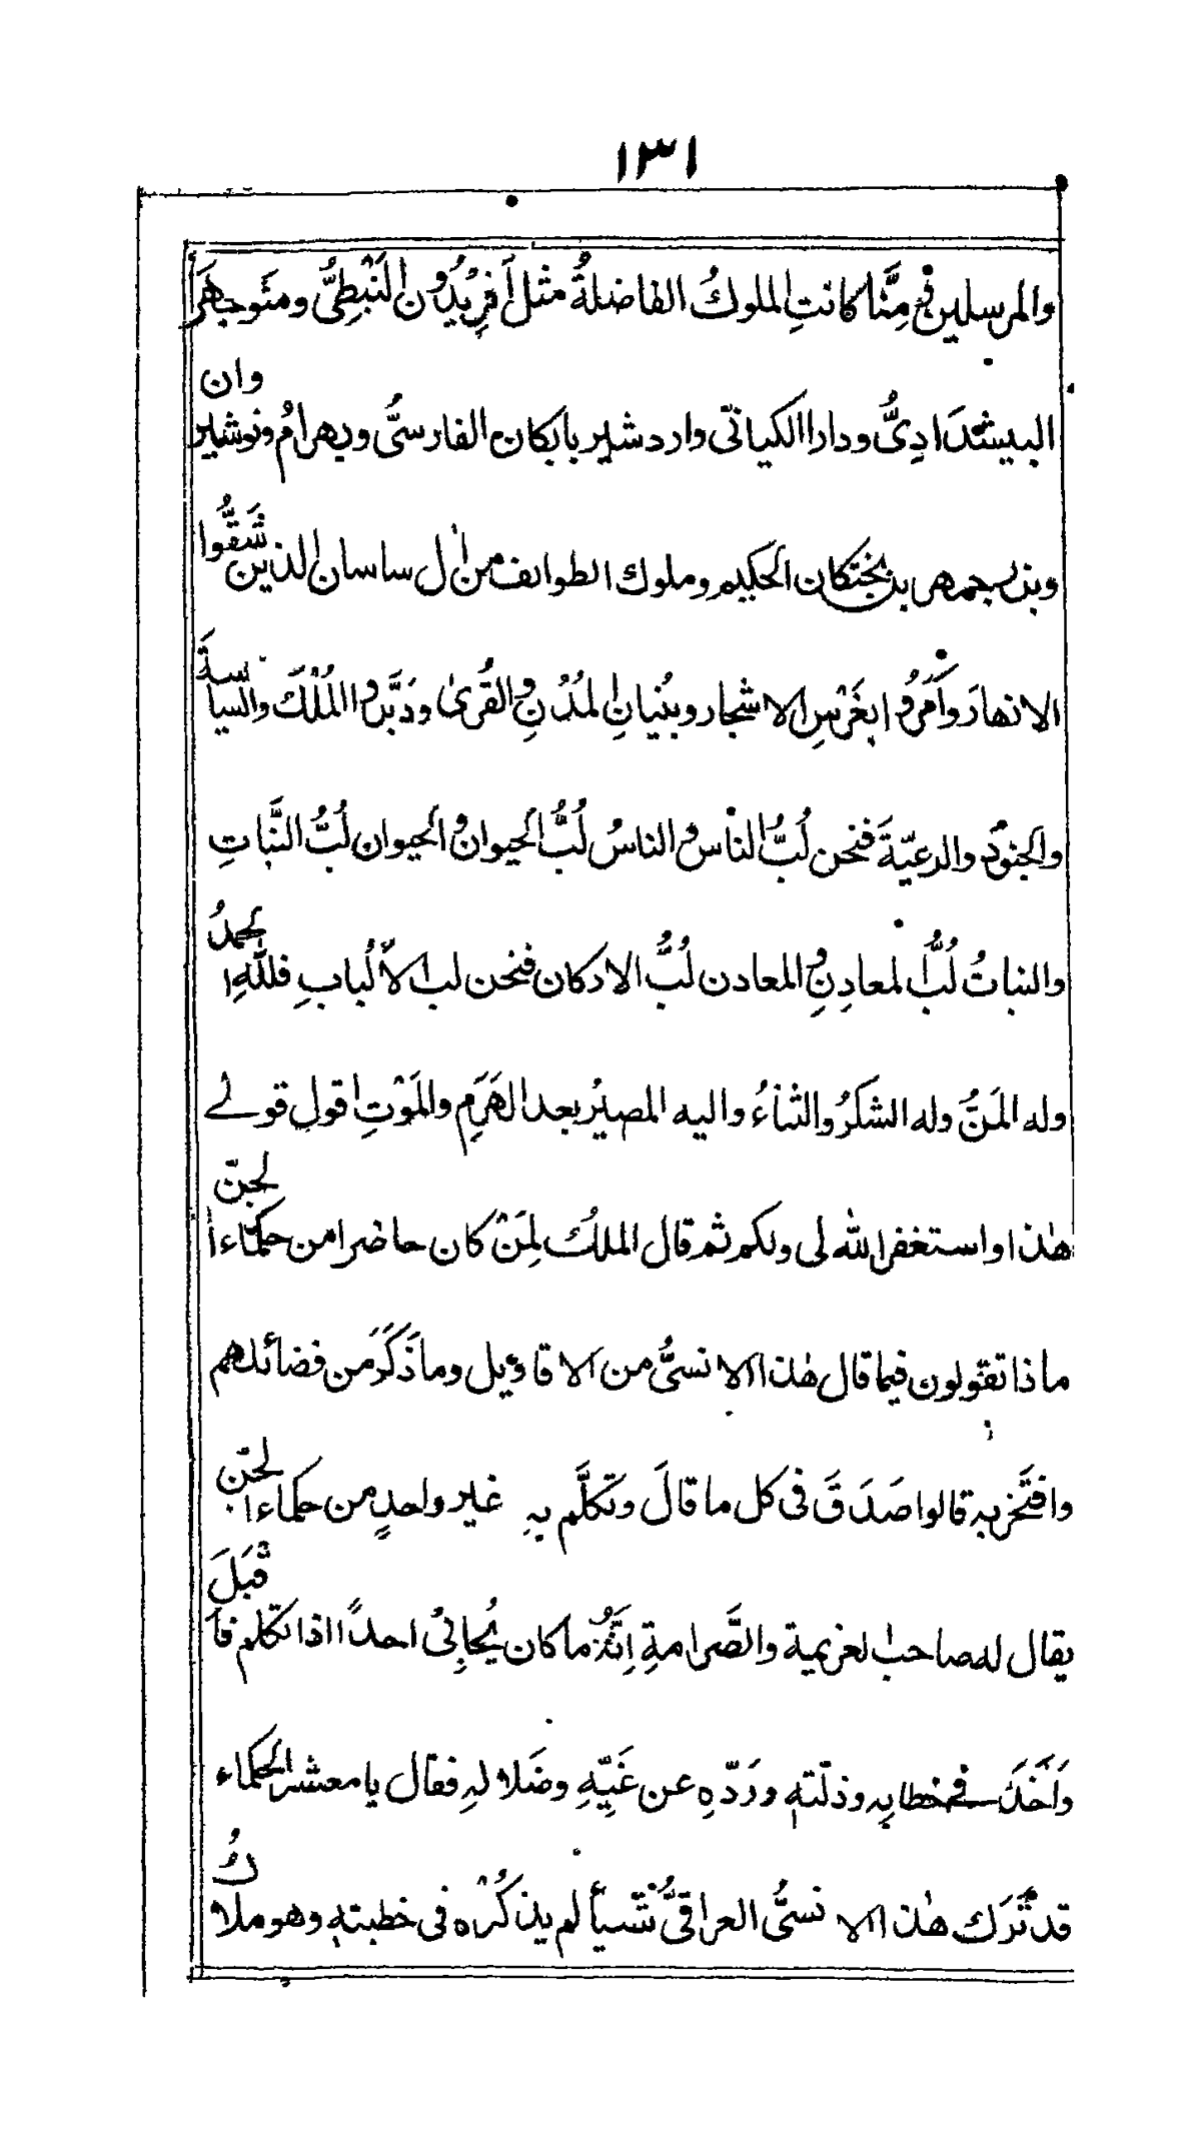 ١٣١
والمرسلين ومِنَّا كانتِ الملوكُ الفاضلةُ مثل أَفرِيْدُون النَبْطِىُّ ومنَوجهَر
البيشدَادِىُّ ودارا الكيانى واردشير بابكان الفارسىُّ وبهرامُ ونوشيروان
وبزرجمهر بن بختكان الحكيم وملوك الطوائف من اٰل ساسان الذين شَقُّوا
الانهارَ وأَمَرُوا بغَرْسِ الاشجار وبُنيانِ المُدُنِ والقُرىٰ ودَبَّروا المُلْكَ والسياسةَ
والجنودَ والرعيّةَ فنحن لُبُّ الناس والناسُ لُبُّ الحيوان والحيوان لُبُّ النَّباتِ
والنباتُ لُبُّ المعادِنِ والمعادن لُبُّ الاركان فنحن لب الأَلْبابِ فللّٰهِ الحمدُ
وله المَنُّ وله الشكرُ والثناءُ واليه المصيرُ بعد الهَرَمِ والمَوْتِ اقول قولے
هٰذا واستغفر اللّٰه لى ولكم ثم قال الملكُ لِمَنْ كان حاضرا من حكماء الجنّ
ماذا تقولون فيما قال هٰذا الانسىُّ من الاقاويل وما ذَكَرَ من فضائلهم
وافتَخَر به قالوا صَدَقَ فى كل ما قالَ وتكلَّم بهِ غير واحدٍ من حكماء الجنّ
يقال له صاحب العزيمة والصَّرامةِ اِنَّهُ ما كان يُحابِىْ احدًا اذا تكلم فأقْبَلَ
وَأَخَذَ فى خطابِهِ وذلّتهِ ورَدّهِ عن غَيِّهِ وضَلالهِ فقال يا معشر الحكماء
قد تَرَك هٰذا الانسىُّ العراقىُّ شيأً لم يذكُرْه فى خطبتهٖ وهو ملاكُ